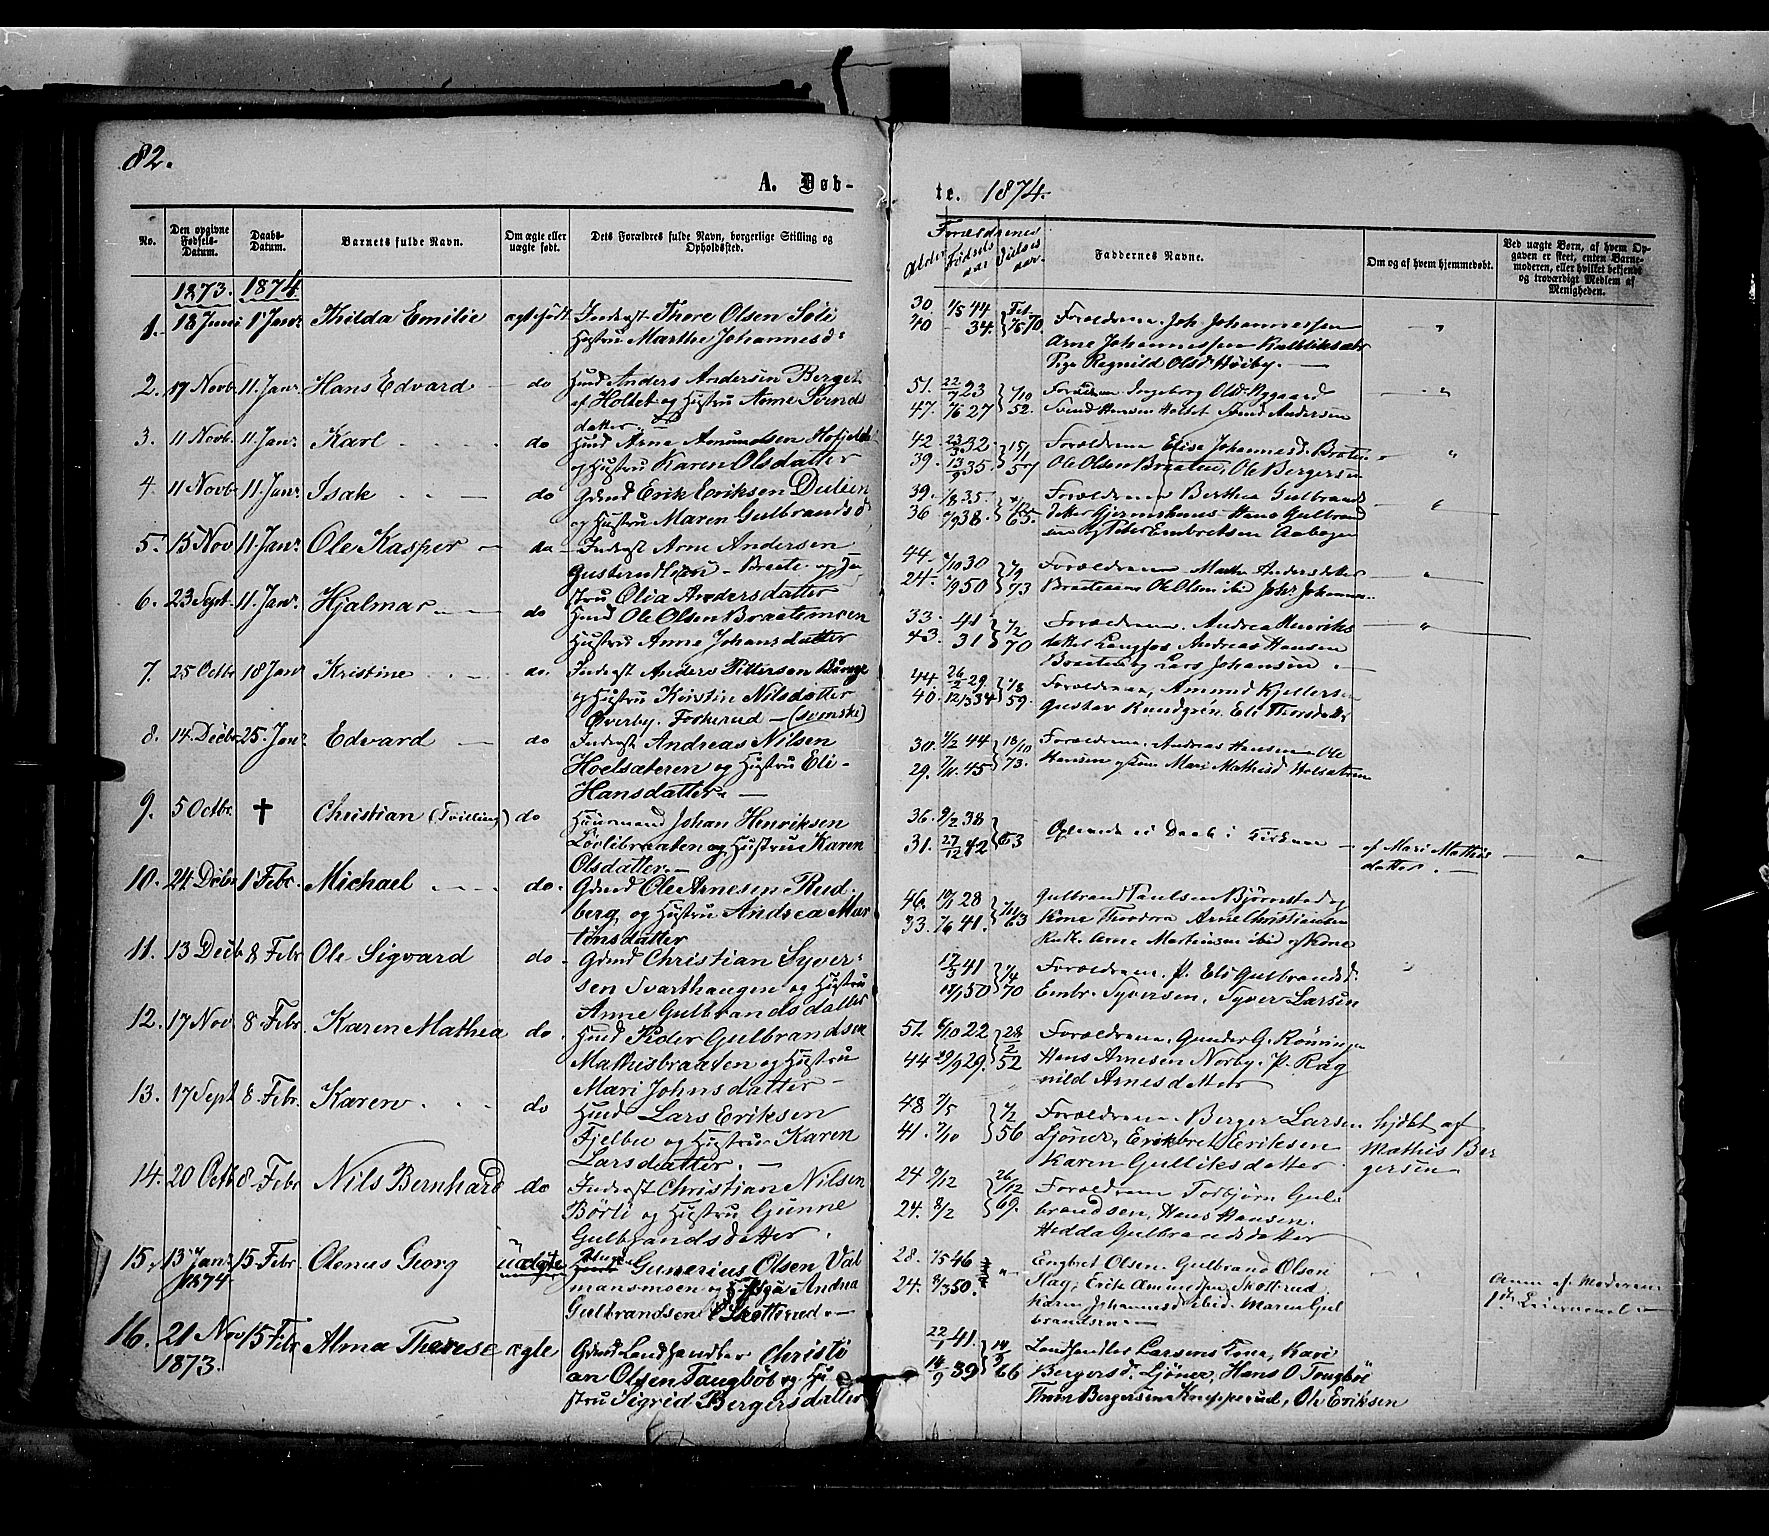 82.
A. Døb-
te. 1874.
No.
Den opgivne Fødsels-Datum.
Daabs-Datum.
Barnets fulde Navn.
Om ægte eller uægte født.
Dets Forældres fulde Navn, borgerlige Stilling og Opholdssted.
Forældrenes
Alder Fødselsaar Vielsesaar.
Faddernes Navne.
Om og af hvem hjemmedøbt.
Ved uægte Børn, af hvem Opgaven er skeet, enten Barnemoderen, eller hvilket bekjendt og troværdigt Medlem af Menigheden.
1873. 1874
1. 18 Juni 1 Janr. Thilda Emilie ægte født Inderst Thore Olsen Søli
Hustru Marthe Johannesd:
30. 1/5 44
40 - 34 70. Forældrene. Joh. Johannessen
Arne Johannessen
Pige Ragnild Olsd. Høiby. —
2. 17 Novb. 11 Janr. Hans Edvard — do Huusd Anders Andersen Berget
af Holtet og Hustru Anne Svends
datter.
51. 22/7 23 7/10
47. 27 52. Forældrene Ingeborg Olsd. Nygaard
Svend Hansen Holtet Svend Andersen
3. 11 Novb. 11 Janr. Karl do Huusd Arne Amundsen
og Hustru Karen Olsdatter
42. 23/3 32 15/1
39. 13/9 35. 57 Forældrene Elise Johannesd. Braten
Ole Olsen Braaten, Ole Bergersen
4. 11 Novb 11. Janr. Isak do Grmd Erik Eriksen Dulien
og Hustru Maren Gulbrandsd.
39. 1/8 35.
36 38. 63. Forældrene Berthea Gulbrands
datter Hans Gulbrand
sen og Peder Embretsen Aabogen
5. 15 Nov 11 Janr. Ole Kasper — do Inderst Arne Andersen
— Braate og Hu
stru Olia Andersdatter
44. 30 7/9
24. 50 73 Forældrene Marthe Andersdatter
Braatesaas Ole Olsen ibid
6. 23 Sept 11 Janr. Hjalmar do Huusd Ole Olsen Braatemoen
Hustru Anne Johansdatter
33. 41 7/2
43. 31 70 Forældrene. Andrea Henriks
datter Langfos Andreas Hansen
Braaten og Lars Johansen. —
7. 25 Octbr 18 Janr Kristine do. Inderst Anders Pettersen
og Hustru Kerstin Nilsdatter
Overby. Foskerud — (svenske)
44. 26/2 29.
40. 12/3 34 59. Forældrene, Amund Kjellersen
Gustav Rundgren. Eli Thorsdatter
8. 14. Decbr 25 Janr. Edvard — do Inderst Andreas Nilsen
Hoelsæteren og Hustru Eli-
Hansdatter. —
30. 1/2 44 18/10
29. 45 73. Forældrene. Andreas Hansen Ole
Hansen Mari Mathisd Holsætren
9. 5 Octbr. † Christian (Tvilling) do Huusmand Johan Henriksen
Løvlibraaten og Hustru Karen
Olsdatter. —
36. 9/2 38
31. 27/12 42 63 Døb i Kirken — af Mari Mathis
datter. —
10. 24 Decbr 1 Febr. Michael do. Grmd Ole Arnesen Rud
berg og Hustru Andrea Mar
tinsdatter
46. 28
33. 7/6 41. 63 Gulbrand Paulsen Bjørnstad og
Kone Theodora Arne Christiansen
Rudb. Arne Martinsen ibid og Kone
11. 13 Decbr 8 Febr Ole Sigvard do. Grmd Christian Syver-
sen Svarthaugen og Hustru
Anne Gulbrandsdatter
17/5 41 1/4
50 70 Forældrene. P. Eli Gulbrandsd.
Embr. Syversen, Syver Larsen
12. 17 Nov 8 Febr. Karen Mathea do. Huusd Peder Gulbrandsen
Mathisbraaten og Hustru
Mari Johnsdatter —
51. 6/10 22 28/2
44 29/9 29. 52 Forældrene. Gunder G. Rønninge
Hans Arnesen Norby. P. Rag
nild Arnesdatter
13. 17 Sept 8 Febr. Karen do Huusd Lars Eriksen
Fjelbu og Hustru Karen
Larsdatter. —
48 7/5 7/2
41. 7/10 56 Forældrene. Berger Larsen
Sjøner, Erikbret Eriksen
Karen Gulliksdatter hjdbt af
Mathis Ber
gersen
14. 20 Octb 8 Febr Nils Bernhard do Inderst Christian Nilsen
Børli og Hustru Gunne
Gulbrandsdatter.
24 9/12 26/12
24. 8/2 69. Forældrene Torbjørn Gul
brandsen, Hans Hansen.
Hedda Gulbrandsdatter
15. 13 Janr. 15 Febr. Olenus Georg uægte Gunerius Olsen Val
1874 mansmoen og Pige Andrea
Gulbrandsen Skotterud. —
28. 1/5 46 "
24. 8/3 50. Engbret Olsen. Gulbrand Olsen
Slag, Erik Amundsen Skotterud
Karen Johannesd ibid. Maren Gul
brandsen —
Anm. af Moderen
1ste Leiermaal —
16. 21 Nov 15 Febr Alma Therese ægte Grmd Landhandler Christi
1873. an Olsen Taugbøl og Hu
stru Sigrid Bergersdatter
22/1 41. 14/3
14/9 39 66 Landhandler Larsens Kone, Kari
Bergersd. Sjøner, Hans O Tougbøl
Thore Bergersen Knapperud, Ole Eriksen